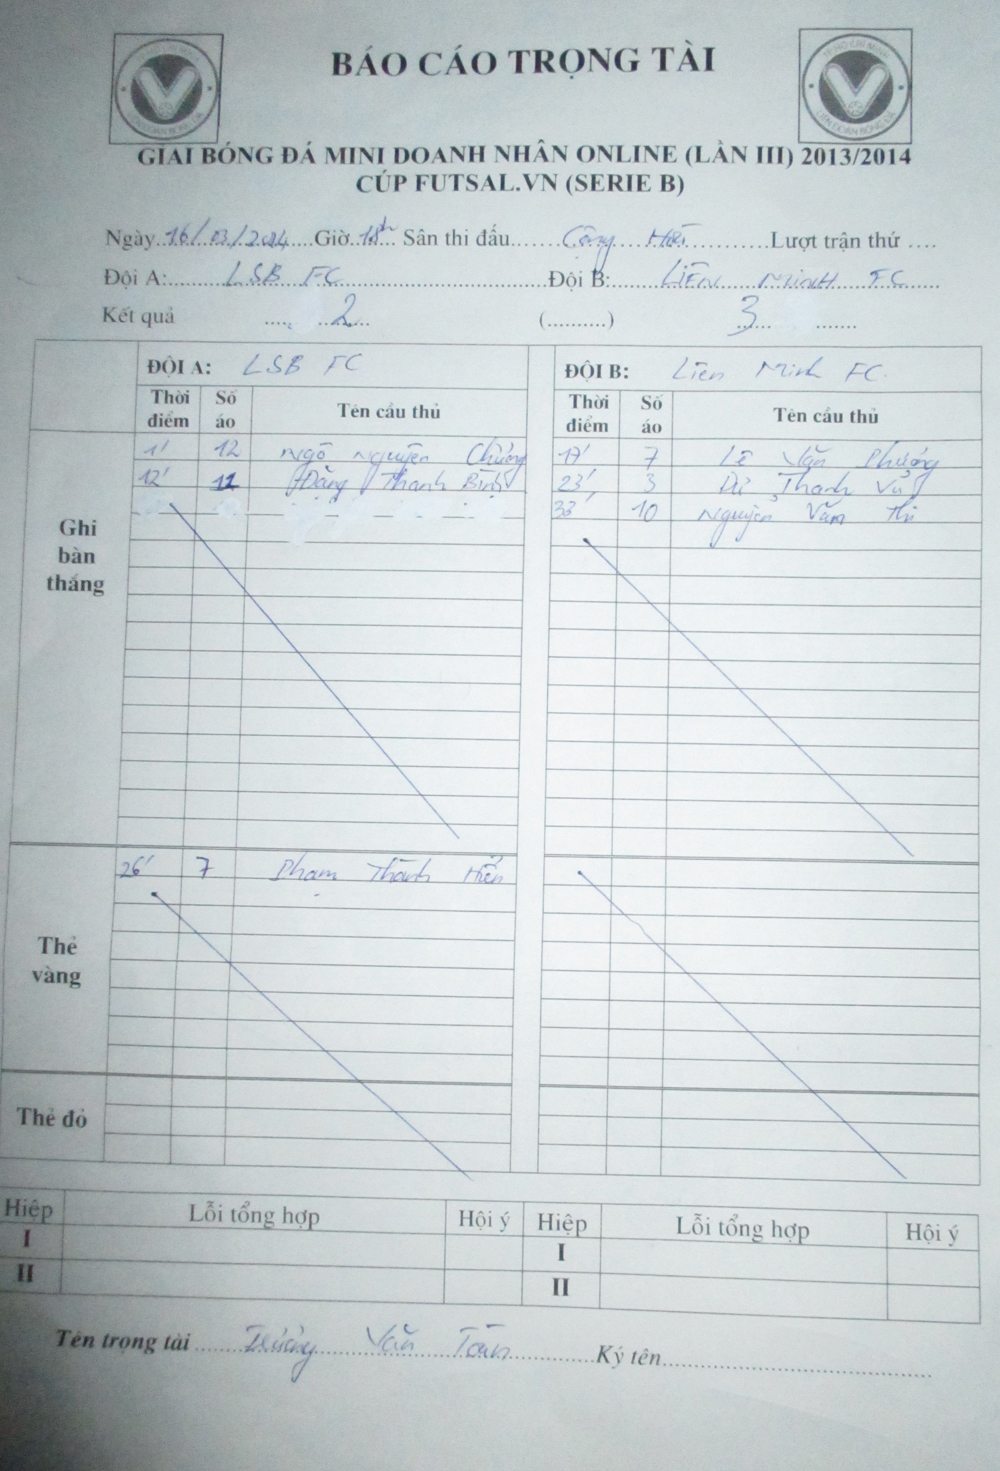 BÁO CÁO TRỌNG TÀI
GIẢI BÓNG ĐÁ MINI DOANH NHÂN ONLINE (LẦN III) 2013/2014
CÚP FUTSAL.VN (SERIE B)
Ngày 16/03/2014 Giờ 18h Sân thi đấu Cộng Hòa Lượt trận thứ ....
Đội A: LSB FC Đội B: LIÊN MINH FC
Kết quả 2 (..........) 3
ĐỘI A: LSB FC ĐỘI B: Liên Minh FC
Thời điểm Số áo Tên cầu thủ Thời điểm Số áo Tên cầu thủ
Ghi bàn thắng
1' 12 Ngô Nguyên Chương 17' 7 Lê Văn Phương
12' 11 Đặng Thanh Bình 23' 3 Thanh Vũ
33' 10 Nguyễn Văn Thi
Thẻ vàng
26' 7 Phạm Thành Hiển
Thẻ đỏ
Hiệp Lỗi tổng hợp Hội ý Hiệp Lỗi tổng hợp Hội ý
I I
II II
Tên trọng tài Trương Văn Toàn Ký tên